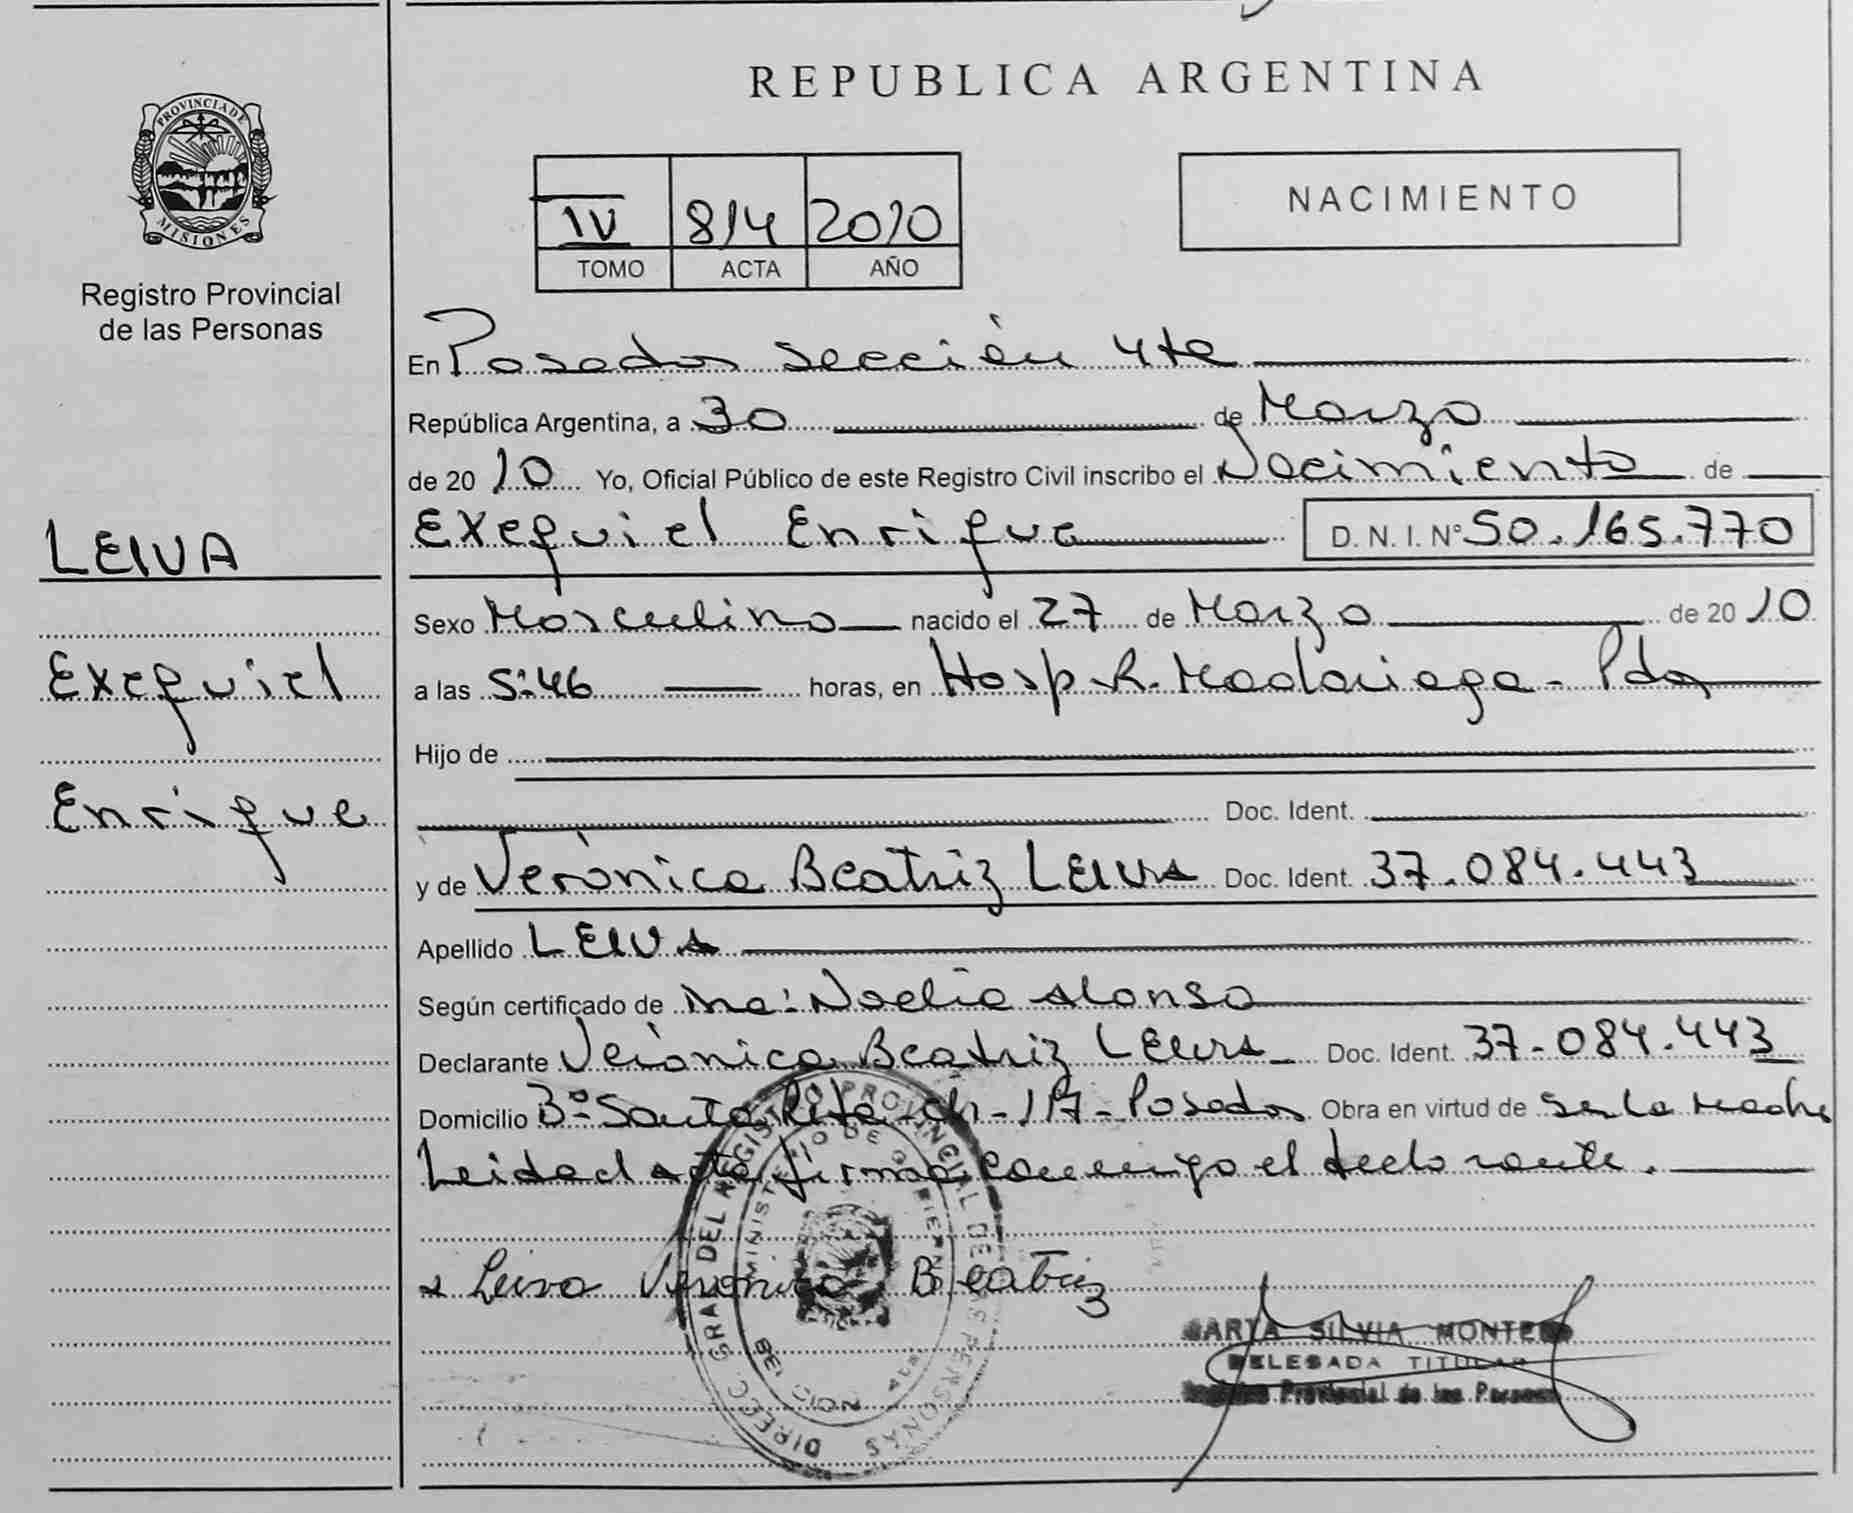 REPUBLICA ARGENTINA
PROVINCIA DE
MISIONES
Registro Provincial
de las Personas
IV 814 2010
TOMO ACTA AÑO
NACIMIENTO
En Posadas sección 4ta
República Argentina, a 30 de Marzo
de 2010 Yo, Oficial Público de este Registro Civil inscribo el Nacimiento de
LEIVA
Exequiel Enrique D. N. I. Nº 50.165.770
Sexo Masculino nacido el 27 de Marzo de 2010
Exequiel
a las 5:46 horas, en Hosp R. Madariaga - Pdas
Hijo de
Enrique
Doc. Ident.
y de Verónica Beatriz LEIVA Doc. Ident. 37.084.443
Apellido LEIVA
Según certificado de Ma: Noelia Alonso
Declarante Verónica Beatriz LEIVA Doc. Ident. 37-084.443
Domicilio Bº Santa Rita - ch - 117 - Posadas Obra en virtud de ser la Madre
Leida el acta firma conmigo el declarante.
Leiva Veronica Beatriz
DIRECC. GRAL DEL REGISTRO PROVINCIAL DE LAS PERSONAS
MINISTERIO DE GOBIERNO
MARTA SILVIA MONTERO
DELEGADA TITULAR
Registro Provincial de las Personas